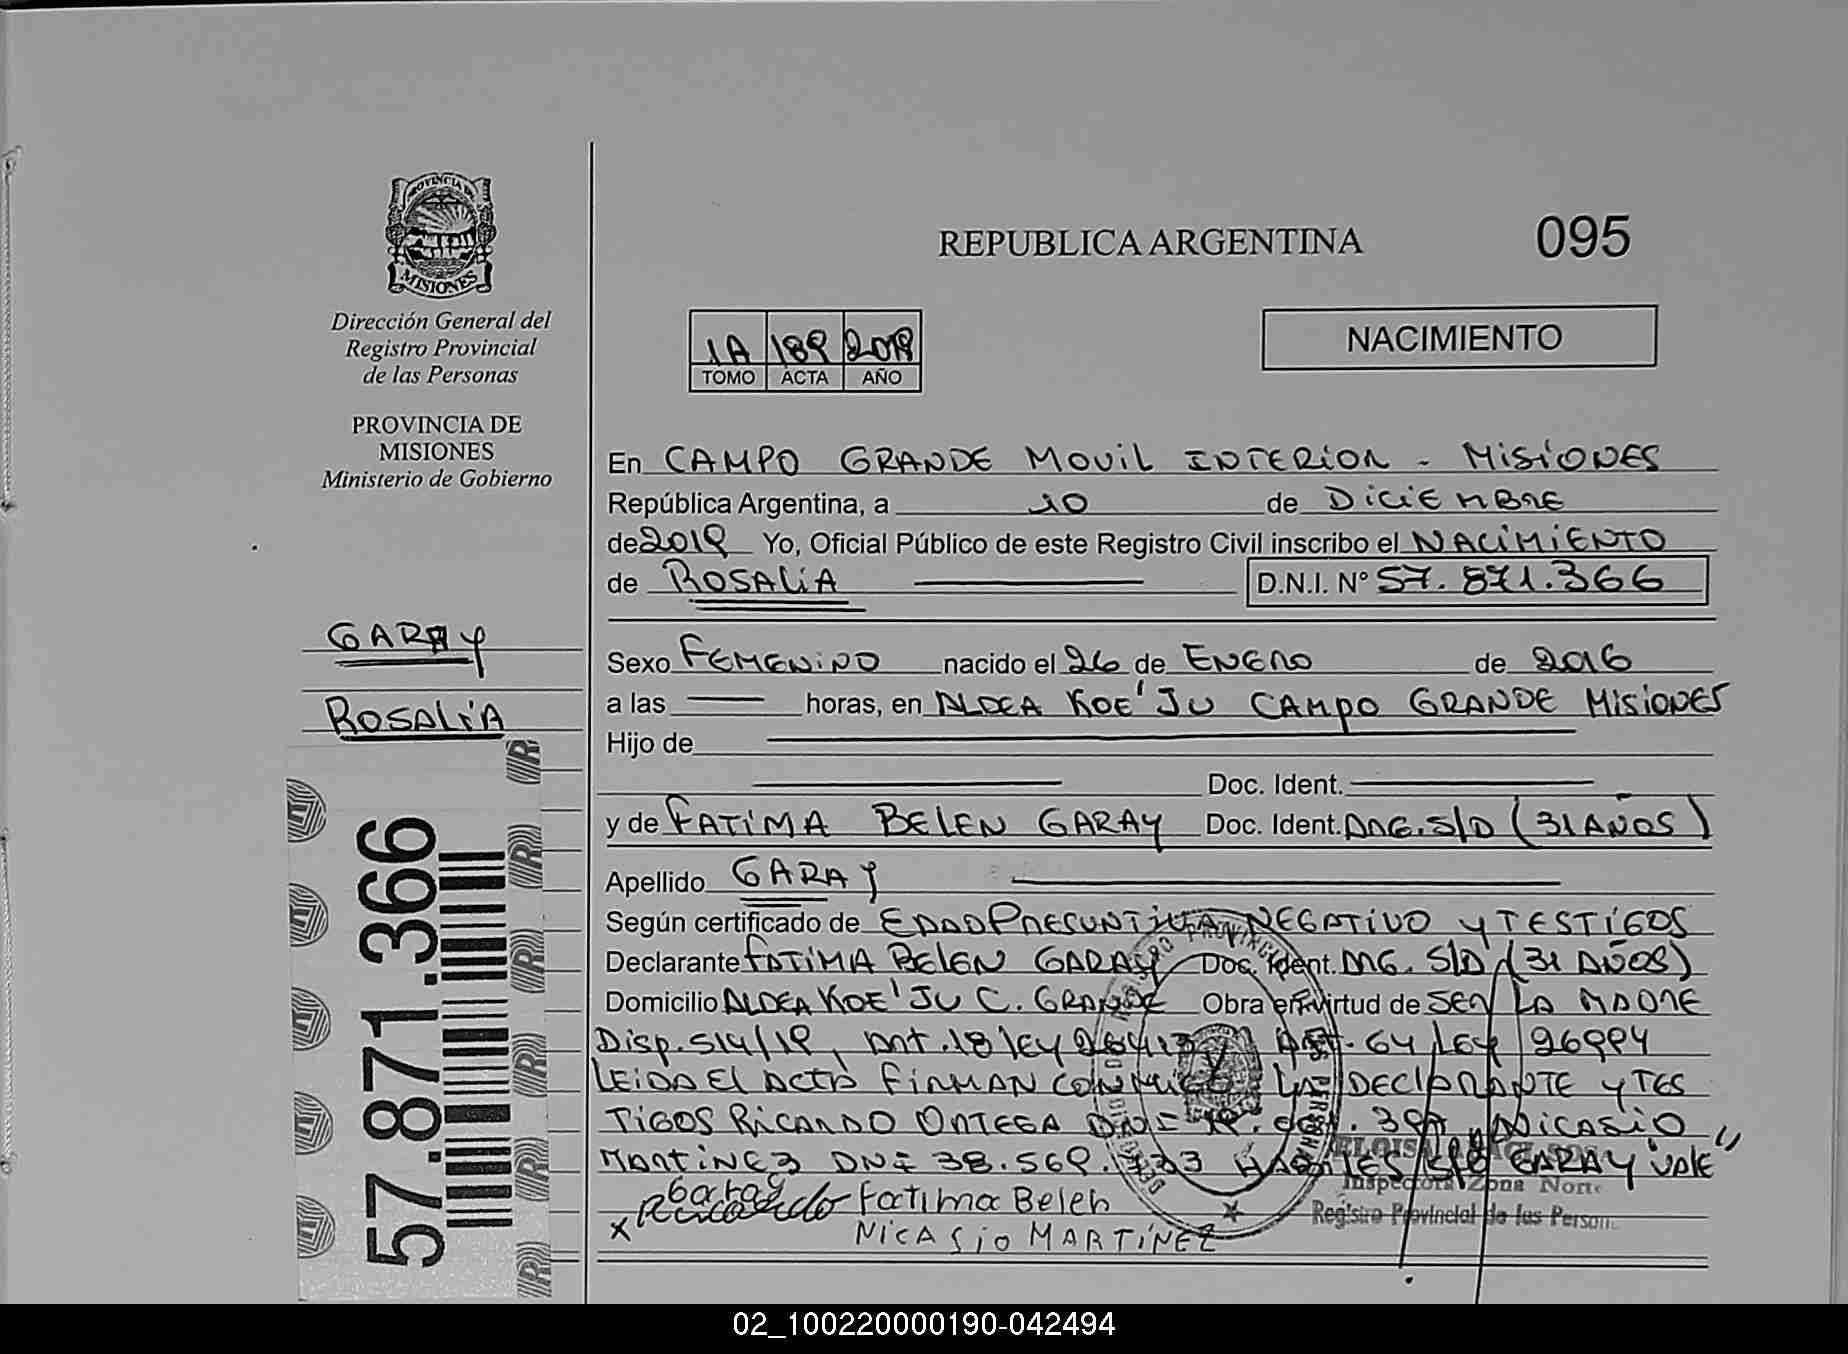 PROVINCIA DE
MISIONES
Dirección General del
Registro Provincial
de las Personas
PROVINCIA DE
MISIONES
Ministerio de Gobierno
GARAY
ROSALIA
57.871.366
REPUBLICA ARGENTINA
095
1A 189 2019
TOMO ACTA AÑO
NACIMIENTO
En CAMPO GRANDE MOVIL INTERIOR - MISIONES
República Argentina, a 10 de DICIEMBRE
de 2019 Yo, Oficial Público de este Registro Civil inscribo el NACIMIENTO
de ROSALIA D.N.I. N° 57.871.366
Sexo FEMENINO nacido el 26 de ENERO de 2016
a las horas, en ALDEA KOE'JU CAMPO GRANDE MISIONES
Hijo de
Doc. Ident.
y de FATIMA BELEN GARAY Doc. Ident. ARG. S/D (31 AÑOS)
Apellido GARAY
Según certificado de EDAD PRESUNTIVA NEGATIVO y TESTIGOS
Declarante FATIMA BELEN GARAY Doc. Ident. ARG. S/D (31 AÑOS)
Domicilio ALDEA KOE'JU C. GRANDE Obra en virtud de SER LA MADRE
Disp. 514/19, Art. 18 ley 26413 Art. 64 Ley 26994
LEIDA El ACTA FIRMAN CONMIGO LA DECLARANTE y TES
TIGOS RICARDO ORTEGA DNI NICASIO
MARTINEZ DNI 38.569. HABILES GARAY VALE"
Garay Fatima Belen
x Ricardo
NICASIO MARTÍNEZ
Inspectora Zona Norte
Registro Provincial de las Person
02_100220000190-042494